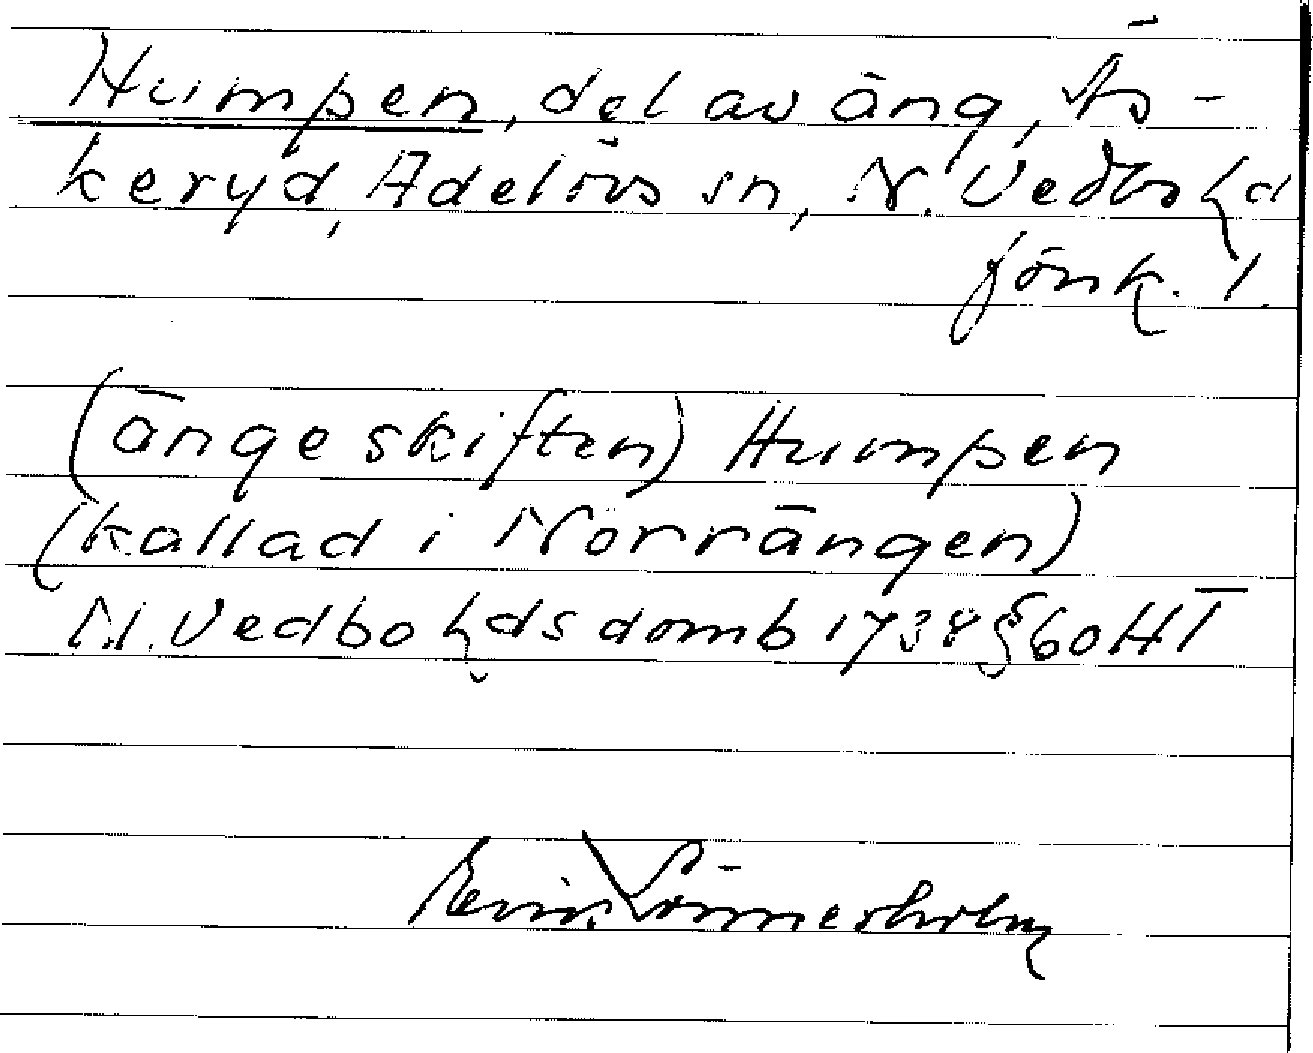 Humpen, del av äng, Äs-
keryd, Adelövs sn, N. Vedbo hd
Jönk. l.
(änge skiften) Humpen
(kallad i Norrängen)
N. Vedbo hds domb 1738 § 60 HT
Lönnerholm